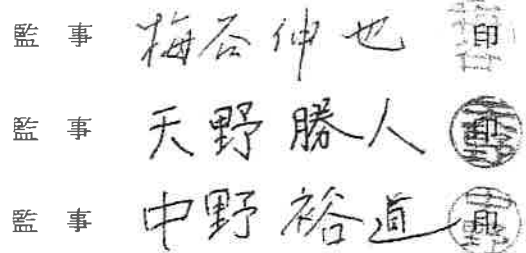 監事 梅谷伸也 印
監事 天野勝人 印
監事 中野裕道 印